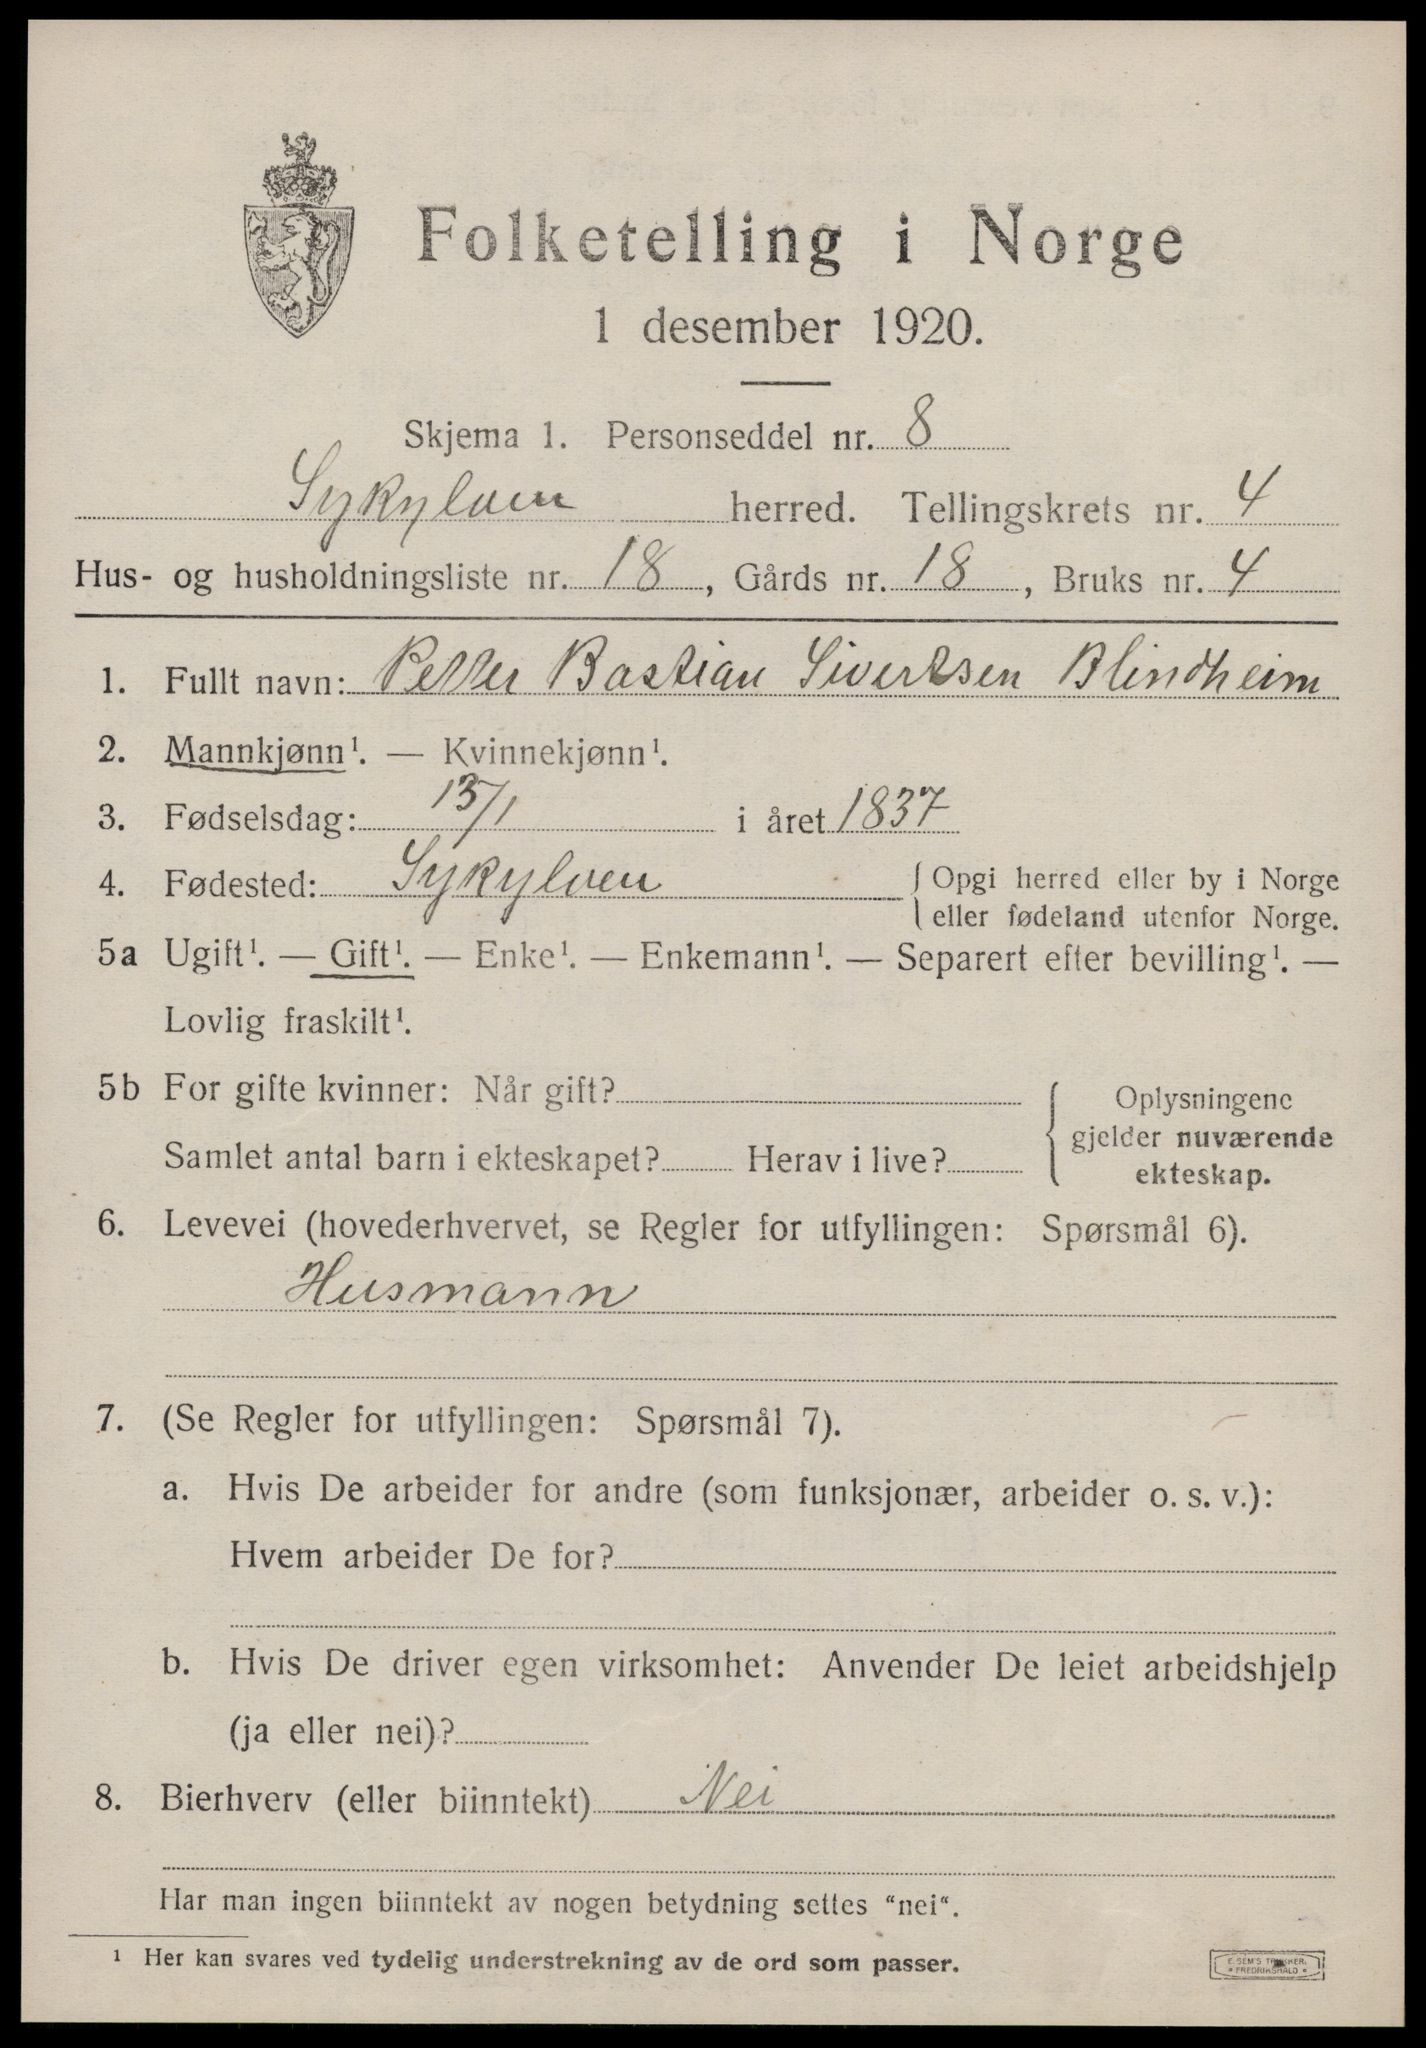 Folketelling i Norge
1 desember 1920.
Skjema 1. Personseddel nr. 8
Sykylven herred. Tellingskrets nr. 4
Hus- og husholdningsliste nr. 18, Gårds nr. 18, Bruks nr. 4
1. Fullt navn: Petter Bastian Sivertsen Blindheim
2. Mannkjønn¹. — Kvinnekjønn¹.
3. Fødselsdag: 13/1 i året 1837
4. Fødested: Sykylven { Opgi herred eller by i Norge
eller fødeland utenfor Norge.
5a Ugift¹. — Gift¹. — Enke¹. — Enkemann¹. — Separert efter bevilling¹. —
Lovlig fraskilt¹.
5b For gifte kvinner: Når gift?
Samlet antal barn i ekteskapet? Herav i live?
Oplysningene
gjelder nuværende
ekteskap.
6. Levevei (hovederhvervet, se Regler for utfyllingen: Spørsmål 6).
Husmann
7. (Se Regler for utfyllingen: Spørsmål 7).
a. Hvis De arbeider for andre (som funksjonær, arbeider o. s. v.):
Hvem arbeider De for?
b. Hvis De driver egen virksomhet: Anvender De leiet arbeidshjelp
(ja eller nei)?
8. Bierhverv (eller biinntekt) Nei
Har man ingen biinntekt av nogen betydning settes “nei“.
¹ Her kan svares ved tydelig understrekning av de ord som passer.
E. SEM'S TRYKKERI
* FREDRIKSHALD *